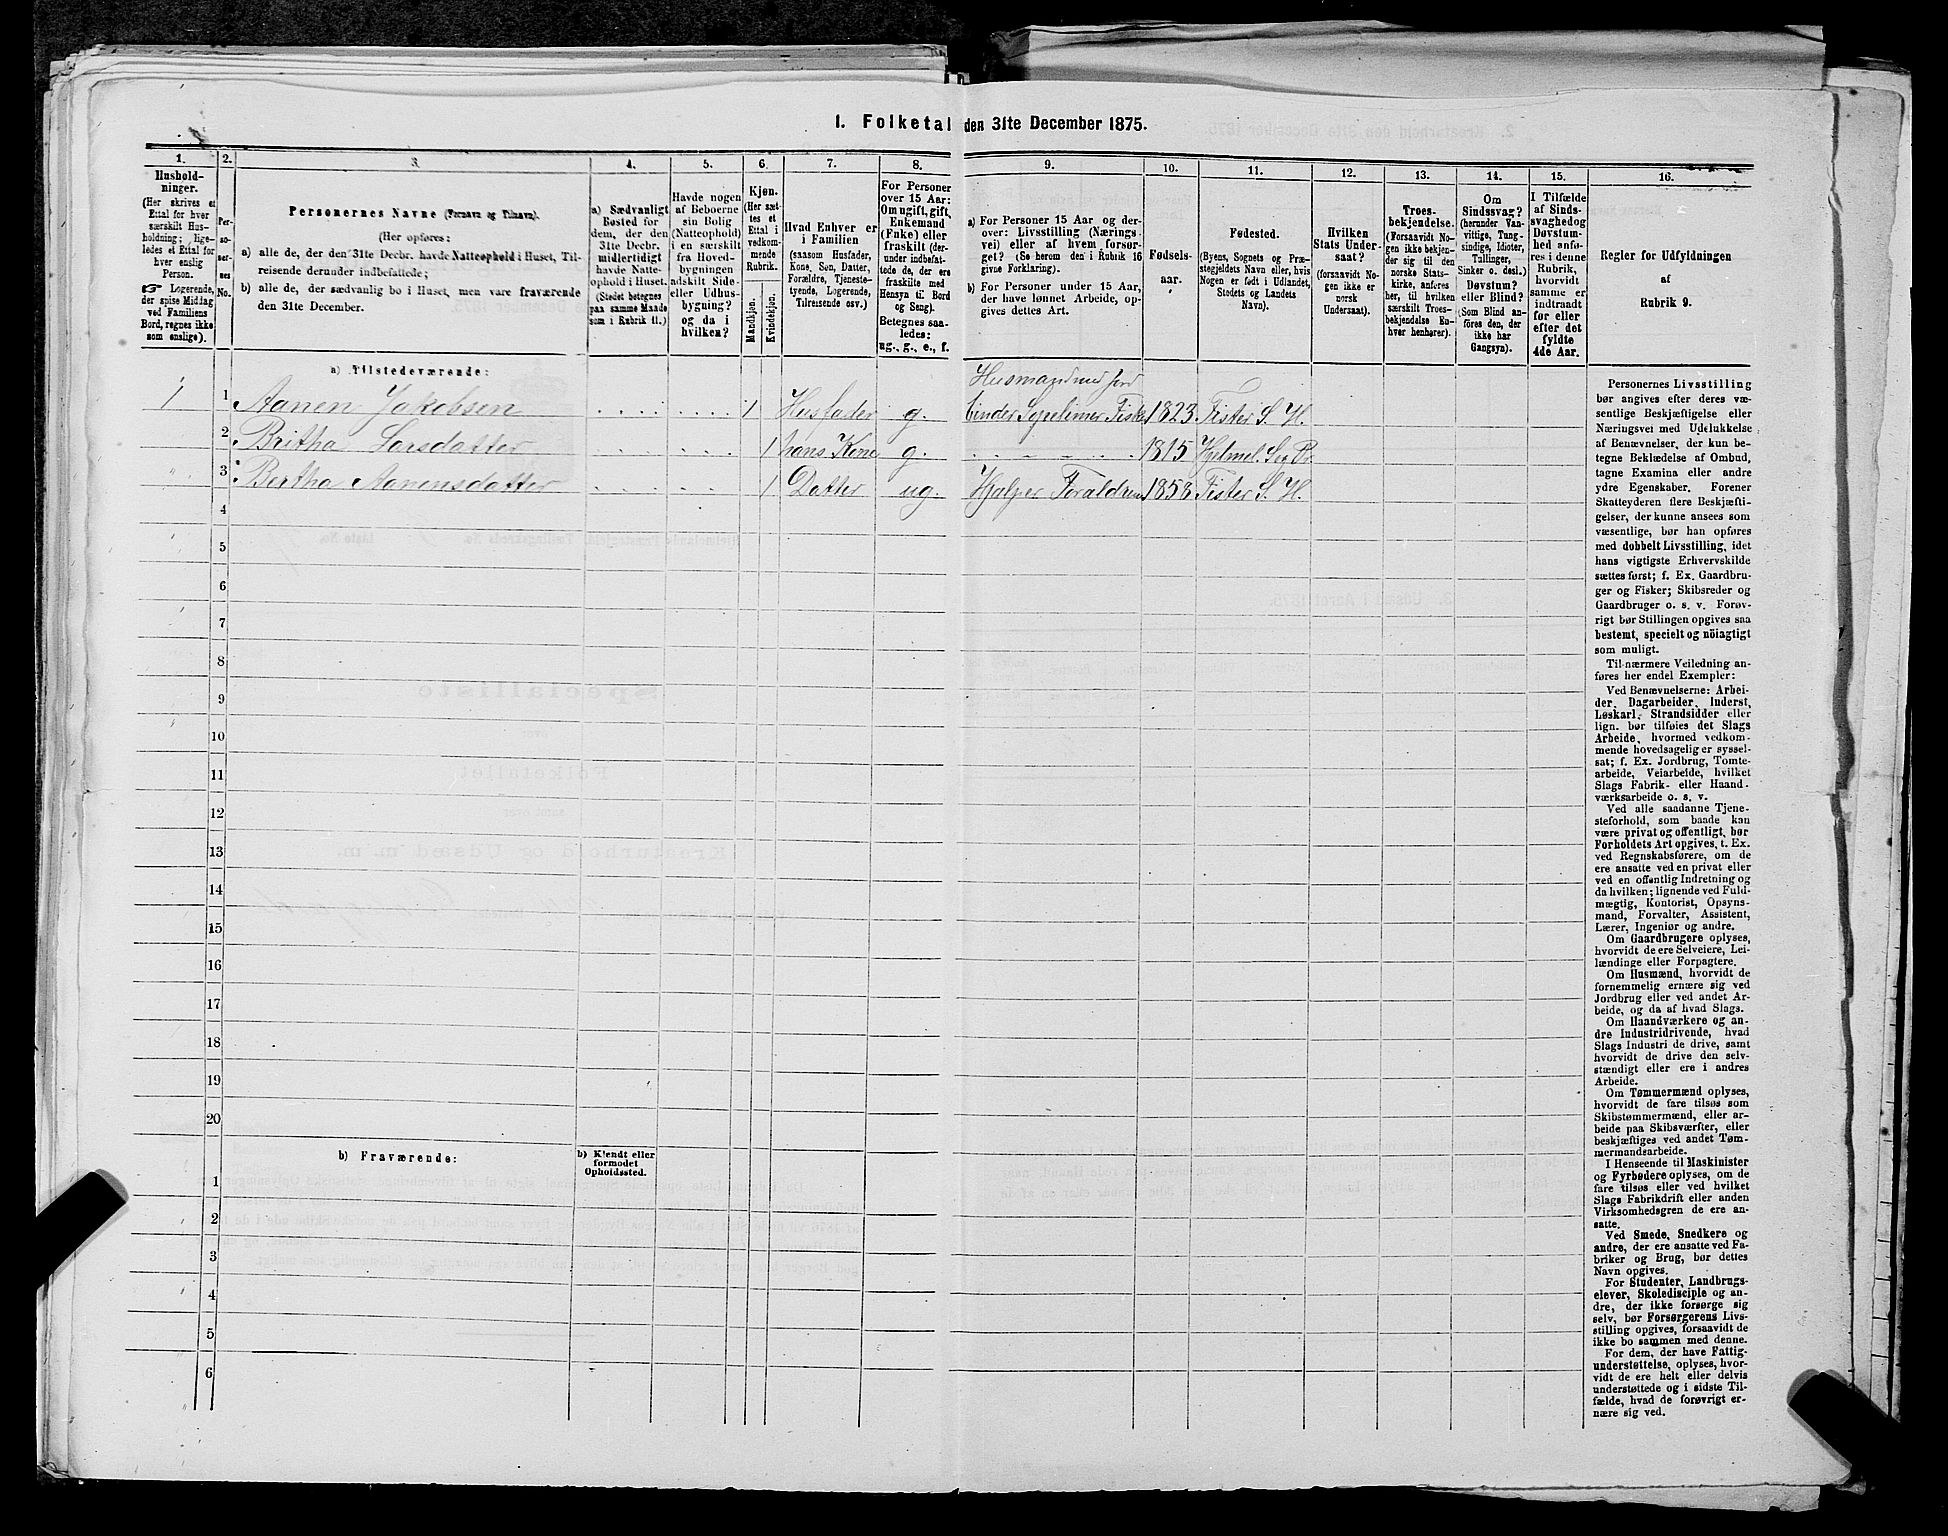 1. Folketal den 31te December 1875.
1.
Hushold-
ninger.
(Her skrives et
Ettal for hver
særskilt Hus-
holdning; lige-
ledes et Ettal for
hver enslig
Person.
☞ Logerende,
der spise Middag
ved Familiens
Bord, regnes ikke
som enslige).
2.
Per-
so-
ner-
nes
No.
3.
Personernes Navne (Fornavn og Tilnavn).
(Her opføres:
a) alle de, der den 31te Decbr. havde Natteophold i Huset, Til-
reisende derunder indbefattede;
b) alle de, der sædvanlig bo i Huset, men vare fraværende
den 31te December.
4.
a) Sædvanligt
Bosted for
dem, der den
31te Decbr.
midlertidigt
havde Natte-
ophold i Huset.
(Stedet betegnes
paa samme Maade
som i Rubrik 11.)
5.
Havde nogen
af Beboerne
sin Bolig
(Natteophold)
i en særskilt
fra Hoved-
bygningen
adskilt Side-
eller Udhus-
bygning?
og da i
hvilken?
6.
Kjøn.
(Her sæt-
tes et
Ettal i
vedkom-
mende
Rubrik.
Mandkjøn.
Kvindekjøn.
7.
Hvad Enhver er
i Familien
(saasom Husfader,
Kone, Søn, Datter,
Forældre, Tjeneste-
tyende, Logerende,
Tilreisende osv.)
8.
For Personer
over 15 Aar:
Om ugift, gift,
Enkemand
(Enke) eller
fraskilt (der-
under indbefat-
tede de, der ere
fraskilte med
Hensyn til Bord
og Seng).
Betegnes saa-
ledes:
ug., g., e., f.
9.
a) For Personer 15 Aar og der-
over: Livsstilling (Nærings-
vei) eller af hvem forsør-
get? (Se herom den i Rubrik 16
givne Forklaring).
b) For Personer under 15 Aar,
der have lønnet Arbeide, op-
gives dettes Art.
10.
Fødsels-
aar.
11.
Fødested.
(Byens, Sognets og Præ-
stegjeldets Navn eller, hvis
Nogen er født i Udlandet,
Stedets og Landets
Navn).
12.
Hvilken
Stats Under-
saat?
(forsaavidt No-
gen ikke er
norsk
Undersaat).
13.
Troes-
bekjendelse.
(Forsaavidt No-
gen ikke bekjen-
der sig til den
norske Stats-
kirke, anføres
her, til hvilken
særskilt Troes-
bekjendelse En-
hver henhører).
14.
Om
Sindssvag?
(herunder Van-
vittige, Tung-
sindige, Idioter,
Tullinger,
Sinker o. desl.)
Døvstum?
eller Blind?
(Som Blind an-
føres den, der
ikke har
Gangsyn).
15.
I Tilfælde
af Sinds-
svaghed og
Døvstum-
hed anfø-
res i denne
Rubrik,
hvorvidt
samme er
indtraadt
før eller
efter det
fyldte
4de Aar.
16.
Regler for Udfyldningen
af
Rubrik 9.
a) Tilstedeværende:
Husmand med Jord
1 1 Aanen Jakobsen 1 Husfader g. Fisker 1823 Fister S. H.
2 Britha Larsdatter 1 hans Kone g. 1815 Hjelmel. S. og Pr
3 Bertha Aanensdatter 1 Datter ug. Hjælper Foraldrene 1858 Fister S. H.
4
5
6
7
8
9
10
11
12
13
14
15
16
17
18
19
20
b) Fraværende:
b) Kjendt eller
formodet
Opholdssted.
1
2
3
4
5
6
Personernes Livsstilling
bør angives efter deres væ-
sentlige Beskjæftigelse eller
Næringsvei med Udelukkelse
af Benævnelser, der kun be-
tegne Beklædelse af Ombud,
tagne Examina eller andre
ydre Egenskaber. Forener
Skatteyderen flere Beskjæfti-
gelser, der kunne ansees som
væsentlige, bør han opføres
med dobbelt Livsstilling, idet
hans vigtigste Erhvervskilde
sættes først; f. Ex. Gaardbru-
ger og Fisker; Skibsreder og
Gaardbruger o. s. v. Forøv-
rigt bør Stillingen opgives saa
bestemt, specielt og nöiagtigt
som muligt.
Til nærmere Veiledning an-
føres her endel Exempler:
Ved Benævnelserne: Arbei-
der, Dagarbeider, Inderst,
Løskarl, Strandsidder eller
lign. bør tilføies det Slags
Arbeide, hvormed vedkom-
mende hovedsagelig er syssel-
sat; f. Ex. Jordbrug, Tomte-
arbeide, Veiarbeide, hvilket
Slags Fabrik- eller Haand-
værksarbeide o. s. v.
Ved alle saadanne Tjene-
steforhold, som baade kan
være privat og offentligt, bør
Forholdets Art opgives, f. Ex.
ved Regnskabsførere, om de
ere ansatte ved en privat eller
ved en offentlig Indretning og
da hvilken; lignende ved Fuld-
mægtig, Kontorist, Opsyns-
mand, Forvalter, Assistent,
Lærer, Ingeniør og andre.
Om Gaardbrugere oplyses,
hvorvidt de ere Selveiere, Lei-
lændinge eller Forpagtere.
Om Husmænd, hvorvidt de
fornemmelig ernære sig ved
Jordbrug eller ved andet Ar-
beide, og da af hvad Slags.
Om Haandværkere og an-
dre Industridrivende, hvad
Slags Industri de drive, samt
hvorvidt de drive den selv-
stændigt eller ere i andres
Arbeide.
Om Tømmermænd oplyses,
hvorvidt de fare tilsøs som
Skibstømmermænd, eller ar-
beide paa Skibsværfter, eller
beskjæftiges ved andet Tøm-
mermandsarbeide.
I Henseende til Maskinister
og Fyrbødere oplyses, om de
fare tilsøs eller ved hvilket
Slags Fabrikdrift eller anden
Virksomhedsgren de ere an-
satte.
Ved Smede, Snedkere og
andre, der ere ansatte ved Fa-
briker og Brug, bør dettes
Navn opgives.
For Studenter, Landbrugs-
elever, Skoledisciple og an-
dre, der ikke forsørge sig
selv, bør Forsørgerens Livs-
stilling opgives, forsaavidt de
ikke bo sammen med denne.
For dem, der have Fattig-
understøttelse, oplyses, hvor-
vidt de ere helt eller delvis
understøttede og i sidste Til-
fælde, hvad de forøvrigt er-
nære sig ved.